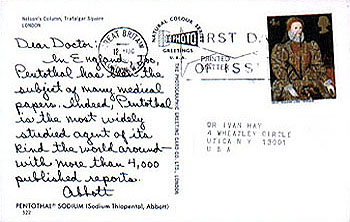 Nelson's Column, Trafalgar Square
LONDON
Dear Doctor:
In England, too,
Pentothal has been the
subject of many medical
papers. Indeed, Pentothal
is the most widely
studied agent of its
kind the world around—
with more than 4,000
published reports.
Abbott
PENTOTHAL® SODIUM (Sodium Thiopental, Abbott)
522
GREAT BRITAIN
NATURAL COLOUR
PHOTO
GREETINGS
U.S.A.
THE PHOTOGRAPHIC GREETING CARD CO. LTD., LONDON
FIRST D
OF ISS
PRINTED
DR IVAN HAY
4 WHEATLEY CIRCLE
UTICA NY 13001
U S A